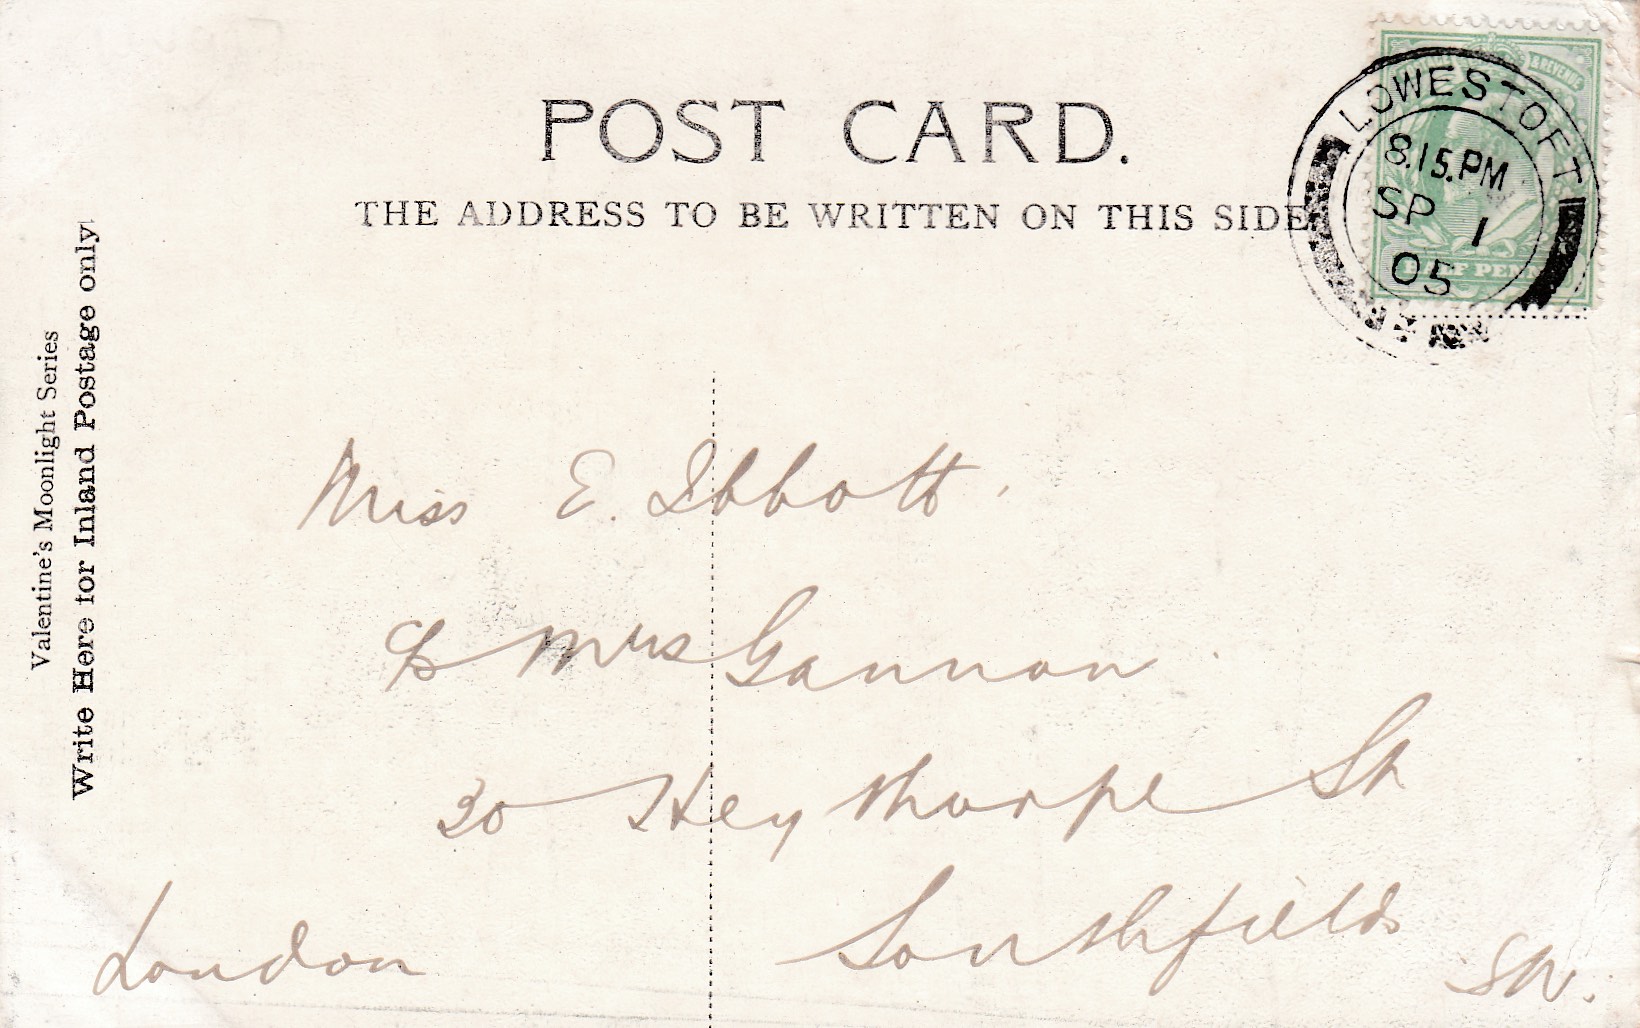 POST CARD.
THE ADDRESS TO BE WRITTEN ON THIS SIDE
& REVENUE
HALF PENNY
LOWESTOFT
8.15.PM
SP 1
05
Valentine's Moonlight Series
Write Here for Inland Postage only
Miss E. Ibbott.
c/o Mrs Gannon
30 Heythorpe St
Southfields
London S.W.